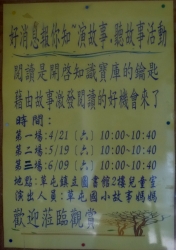 好消息報你知 演故事、聽故事活動
閱讀是開啓知識寶庫的鑰匙
藉由故事激發閱讀的好機會來了
時間：
第一場：4/21 (六) 10:00~10:40
第二場：5/19 (六) 10:00~10:40
第三場：6/09 (六) 10:00~10:40
地點：草屯鎮立圖書館2樓兒童室
演出人員：草屯國小故事媽媽
歡迎蒞臨觀賞